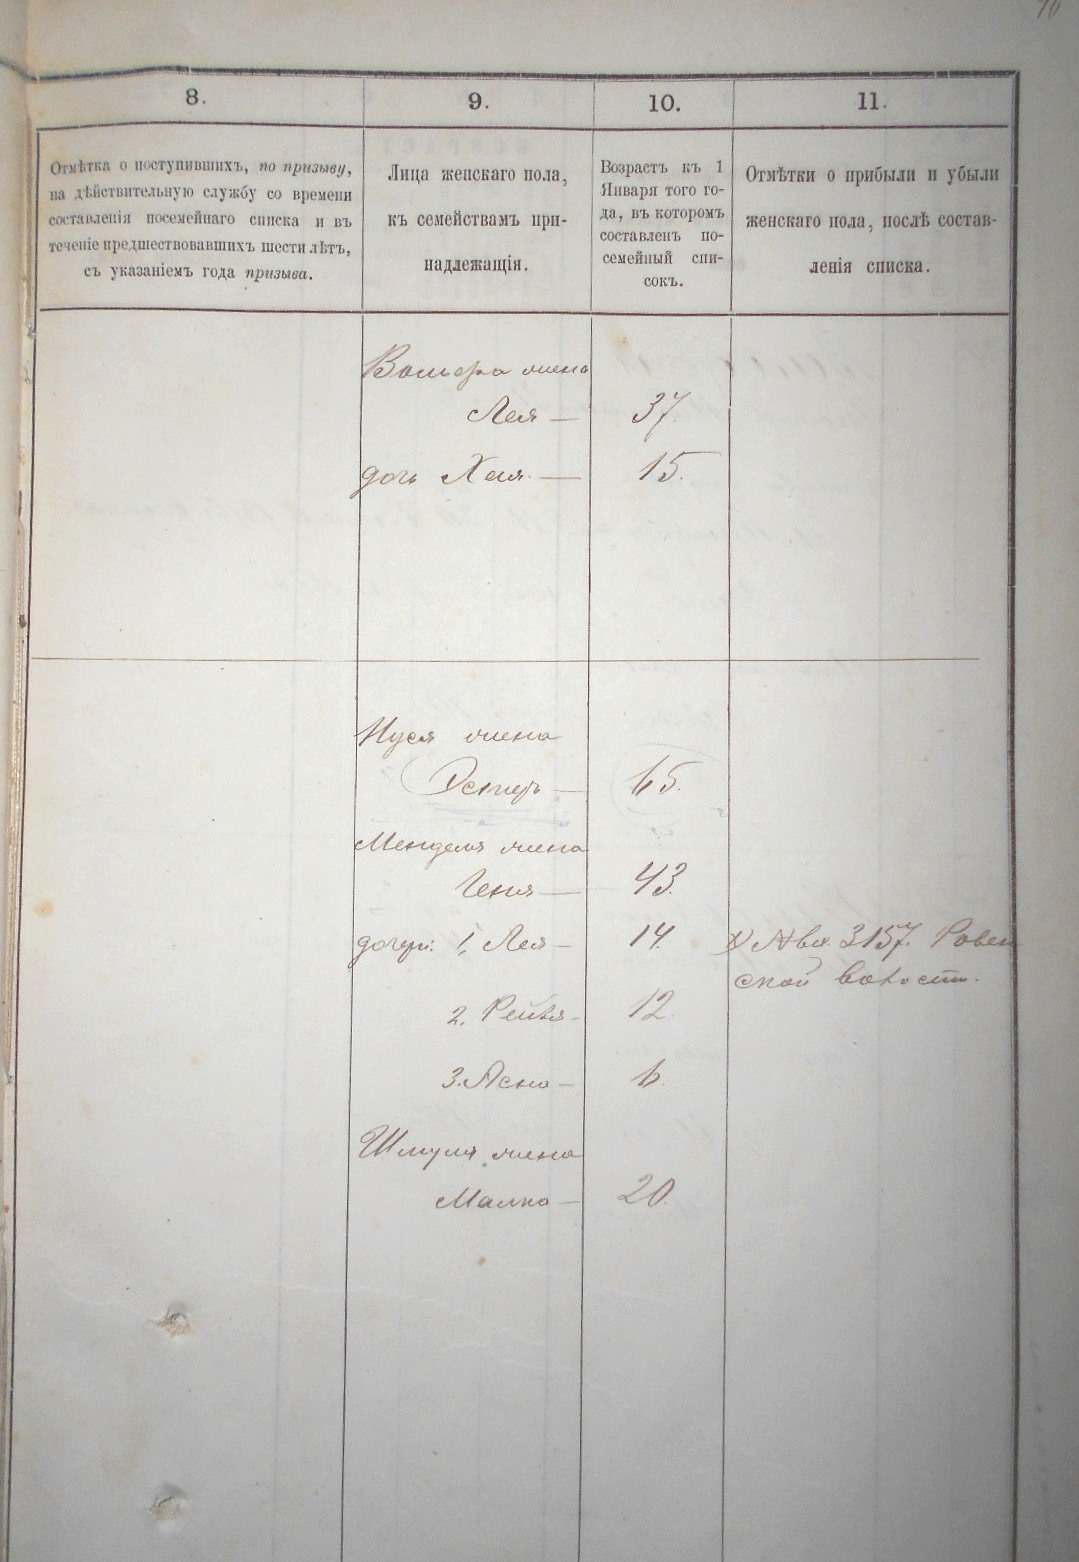 8.
9.
10.
11.
Отмѣтка о поступившихъ, по призыву,
на дѣйствительную службу со времени
составленія посемейнаго списка и въ
теченіе предшествовавшихъ шести лѣтъ,
съ указаніемъ года призыва.
Лица женскаго пола,
къ семействамъ при-
надлежащія.
Возрастъ къ 1
Января того го-
да, въ которомъ
составленъ по-
семейный спи-
сокъ.
Отмѣтки о прибыли и убыли
женскаго пола, послѣ состав-
ленія списка.
жена
Лея — 37.
дочь Хая — 15.
Нуся жена
Эстеръ — 65.
Менделя жена
Геня — 43.
дочери: 1, Лея — 14. 3157. Ровен
ской волости.
2. Рейзя — 12.
3. Асна — 6.
Шмуля жена
Малка — 20.